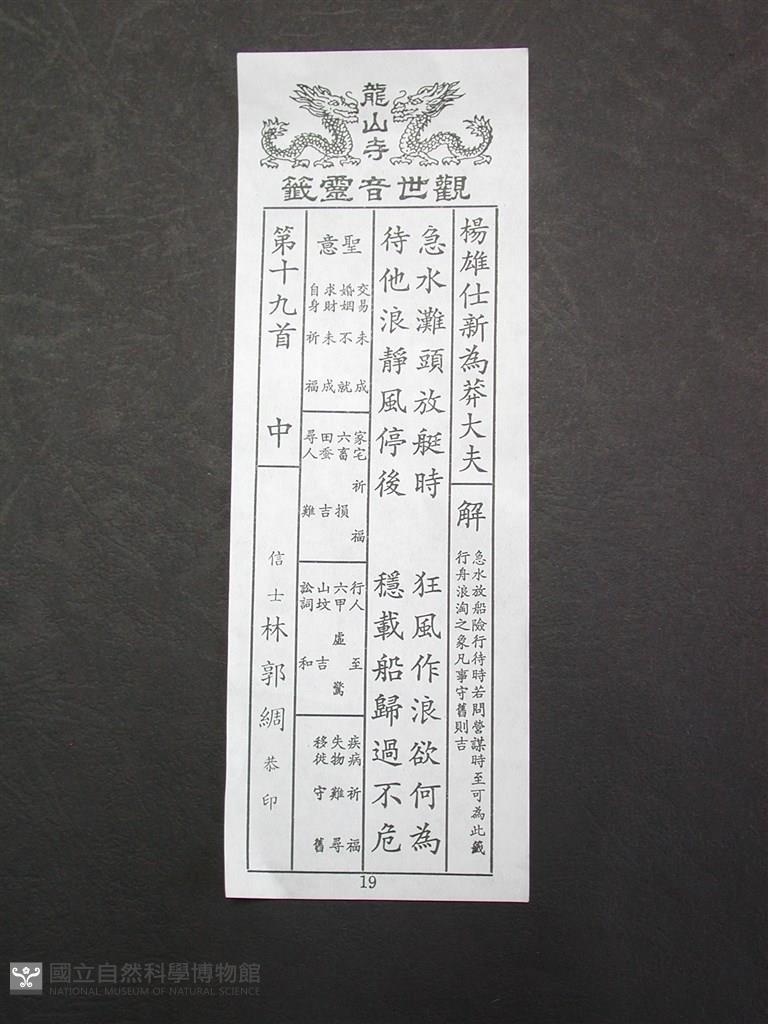 龍山寺
觀世音靈籤
楊雄仕新為莽大夫
解
急水放船險行待時若問營謀時至可為此籤
行舟浪洶之象凡事守舊則吉
急水灘頭放艇時 狂風作浪欲何為
待他浪靜風停後 穩載船歸過不危
聖意
交易未成
婚姻不就
求財未成
自身祈福
家宅祈福
六畜損
田蚕吉
尋人難
行人至
六甲虛驚
山坟吉
訟詞和
疾病祈福
失物難尋
移徙守舊
第十九首 中
信士林郭綢恭印
19
國立自然科學博物館
NATIONAL MUSEUM OF NATURAL SCIENCE